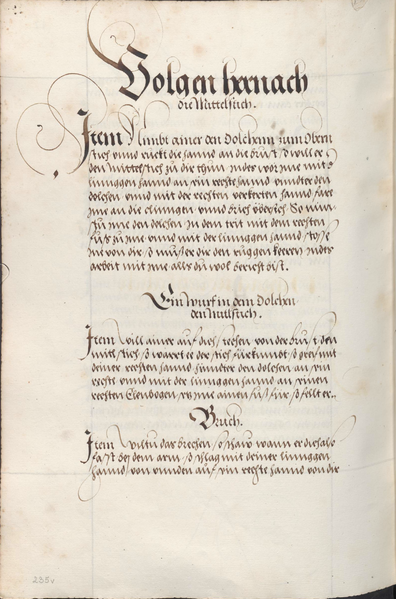 Volgen hernach
die Mittelstich.
Item Nimbt einer den Dolchenn zum Obern
stich vnnd ruckt die hannd an die brust so will er
den Mittelstich zu dir thun Indes vor Ime mit d
linnggen hannd an sein rechte hannd vnndter den
dolchen vnnd mit der rechten verkerten hannd fare
Ime an die clinngen vnnd brich vbersich So
Im den dolchen In dem trit mit dem rechten
fuß zu Ime vnnd mit der linnggen hannd stosse
Im von dir so mueß er dir den ruggen keeren Indes
arbeit mit Ime als du wol bericht bist.
Ein wurf in dem Dolchen
den mitlstich.
Item Will ainer auf dich stechen von der brust den
mitlstich so wart er der stich fürkumbt so greif mit
deiner rechten hannd hinndter den dolchen an sein
recht vnnd mit der linnggen hannd an seinen
rechten Elenbogen, setz Ime ainen fuß für so fellt er.
Bruch.
Item Wiltu das brechen so schaw wann er dich also
fast bey dem arm so schlag mit deiner linnggen
hannd von vnnden auf sein rechte hannd von dir
235v